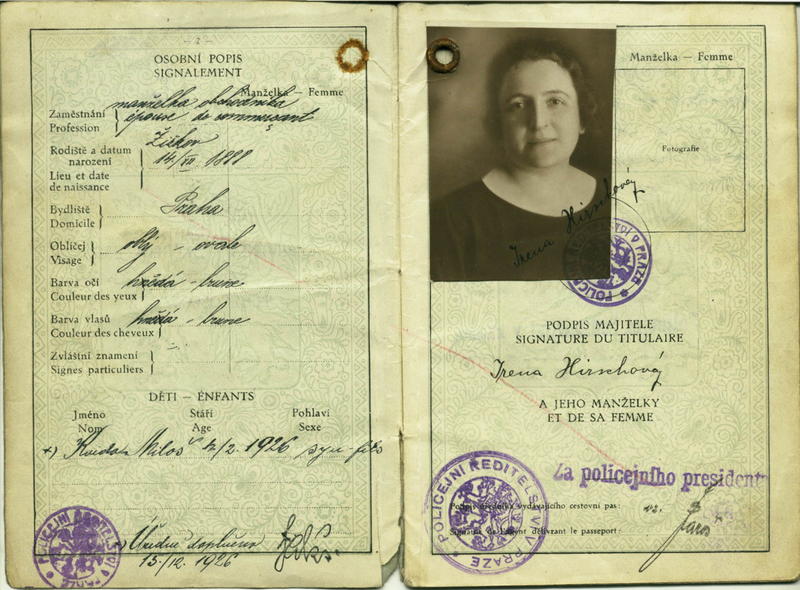 - 2 -
OSOBNÍ POPIS
SIGNALEMENT
Manželka — Femme
Zaměstnání
Profession
manželka obchodníka
épouse de commerçant
Rodiště a datum
narození
Lieu et date
de naissance
Žižkov
14/VII. 1888
Bydliště
Domicile
Praha
Obličej
Visage
oblý - ovale
Barva očí
Couleur des yeux
hnědá - brune
Barva vlasů
Couleur des cheveux
hnědá - brune
Zvláštní znamení
Signes particuliers
DĚTI — ENFANTS
Jméno Stáří Pohlaví
Nom Age Sexe
+) Miloš 1926 syn - fils
POLICEJNÍ ŘEDITELSTVÍ V PRAZE
+) Úředně doplněno
15./12. 1926
Manželka — Femme
Fotografie
Irena Hirschová
POLICEJNÍ ŘEDITELSTVÍ V PRAZE
PODPIS MAJITELE
SIGNATURE DU TITULAIRE
Irena Hirschová
A JEHO MANŽELKY
ET DE SA FEMME
Za policejního president
Podpis úředníka vydávajícího cestovní pas:
Signature de l'agent délivrant le passeport:
POLICEJNÍ ŘEDITELSTVÍ V PRAZE